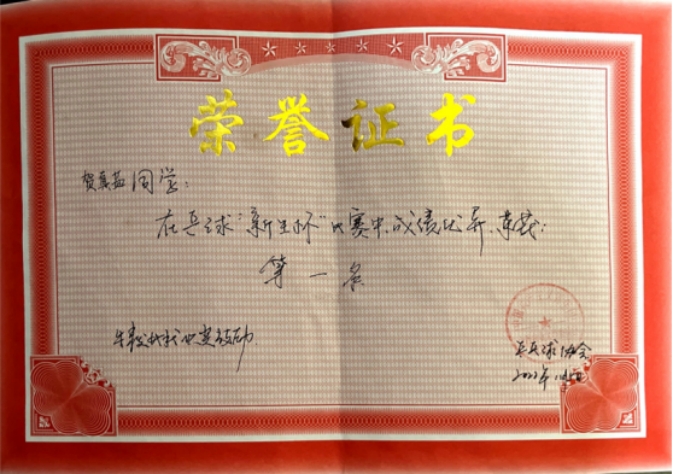 荣誉证书
贺真茹同学:
在乒球“新生杯”比赛中,成绩优异,荣获:
第一名
特发此状以资鼓励
乒乓球协会
2022年